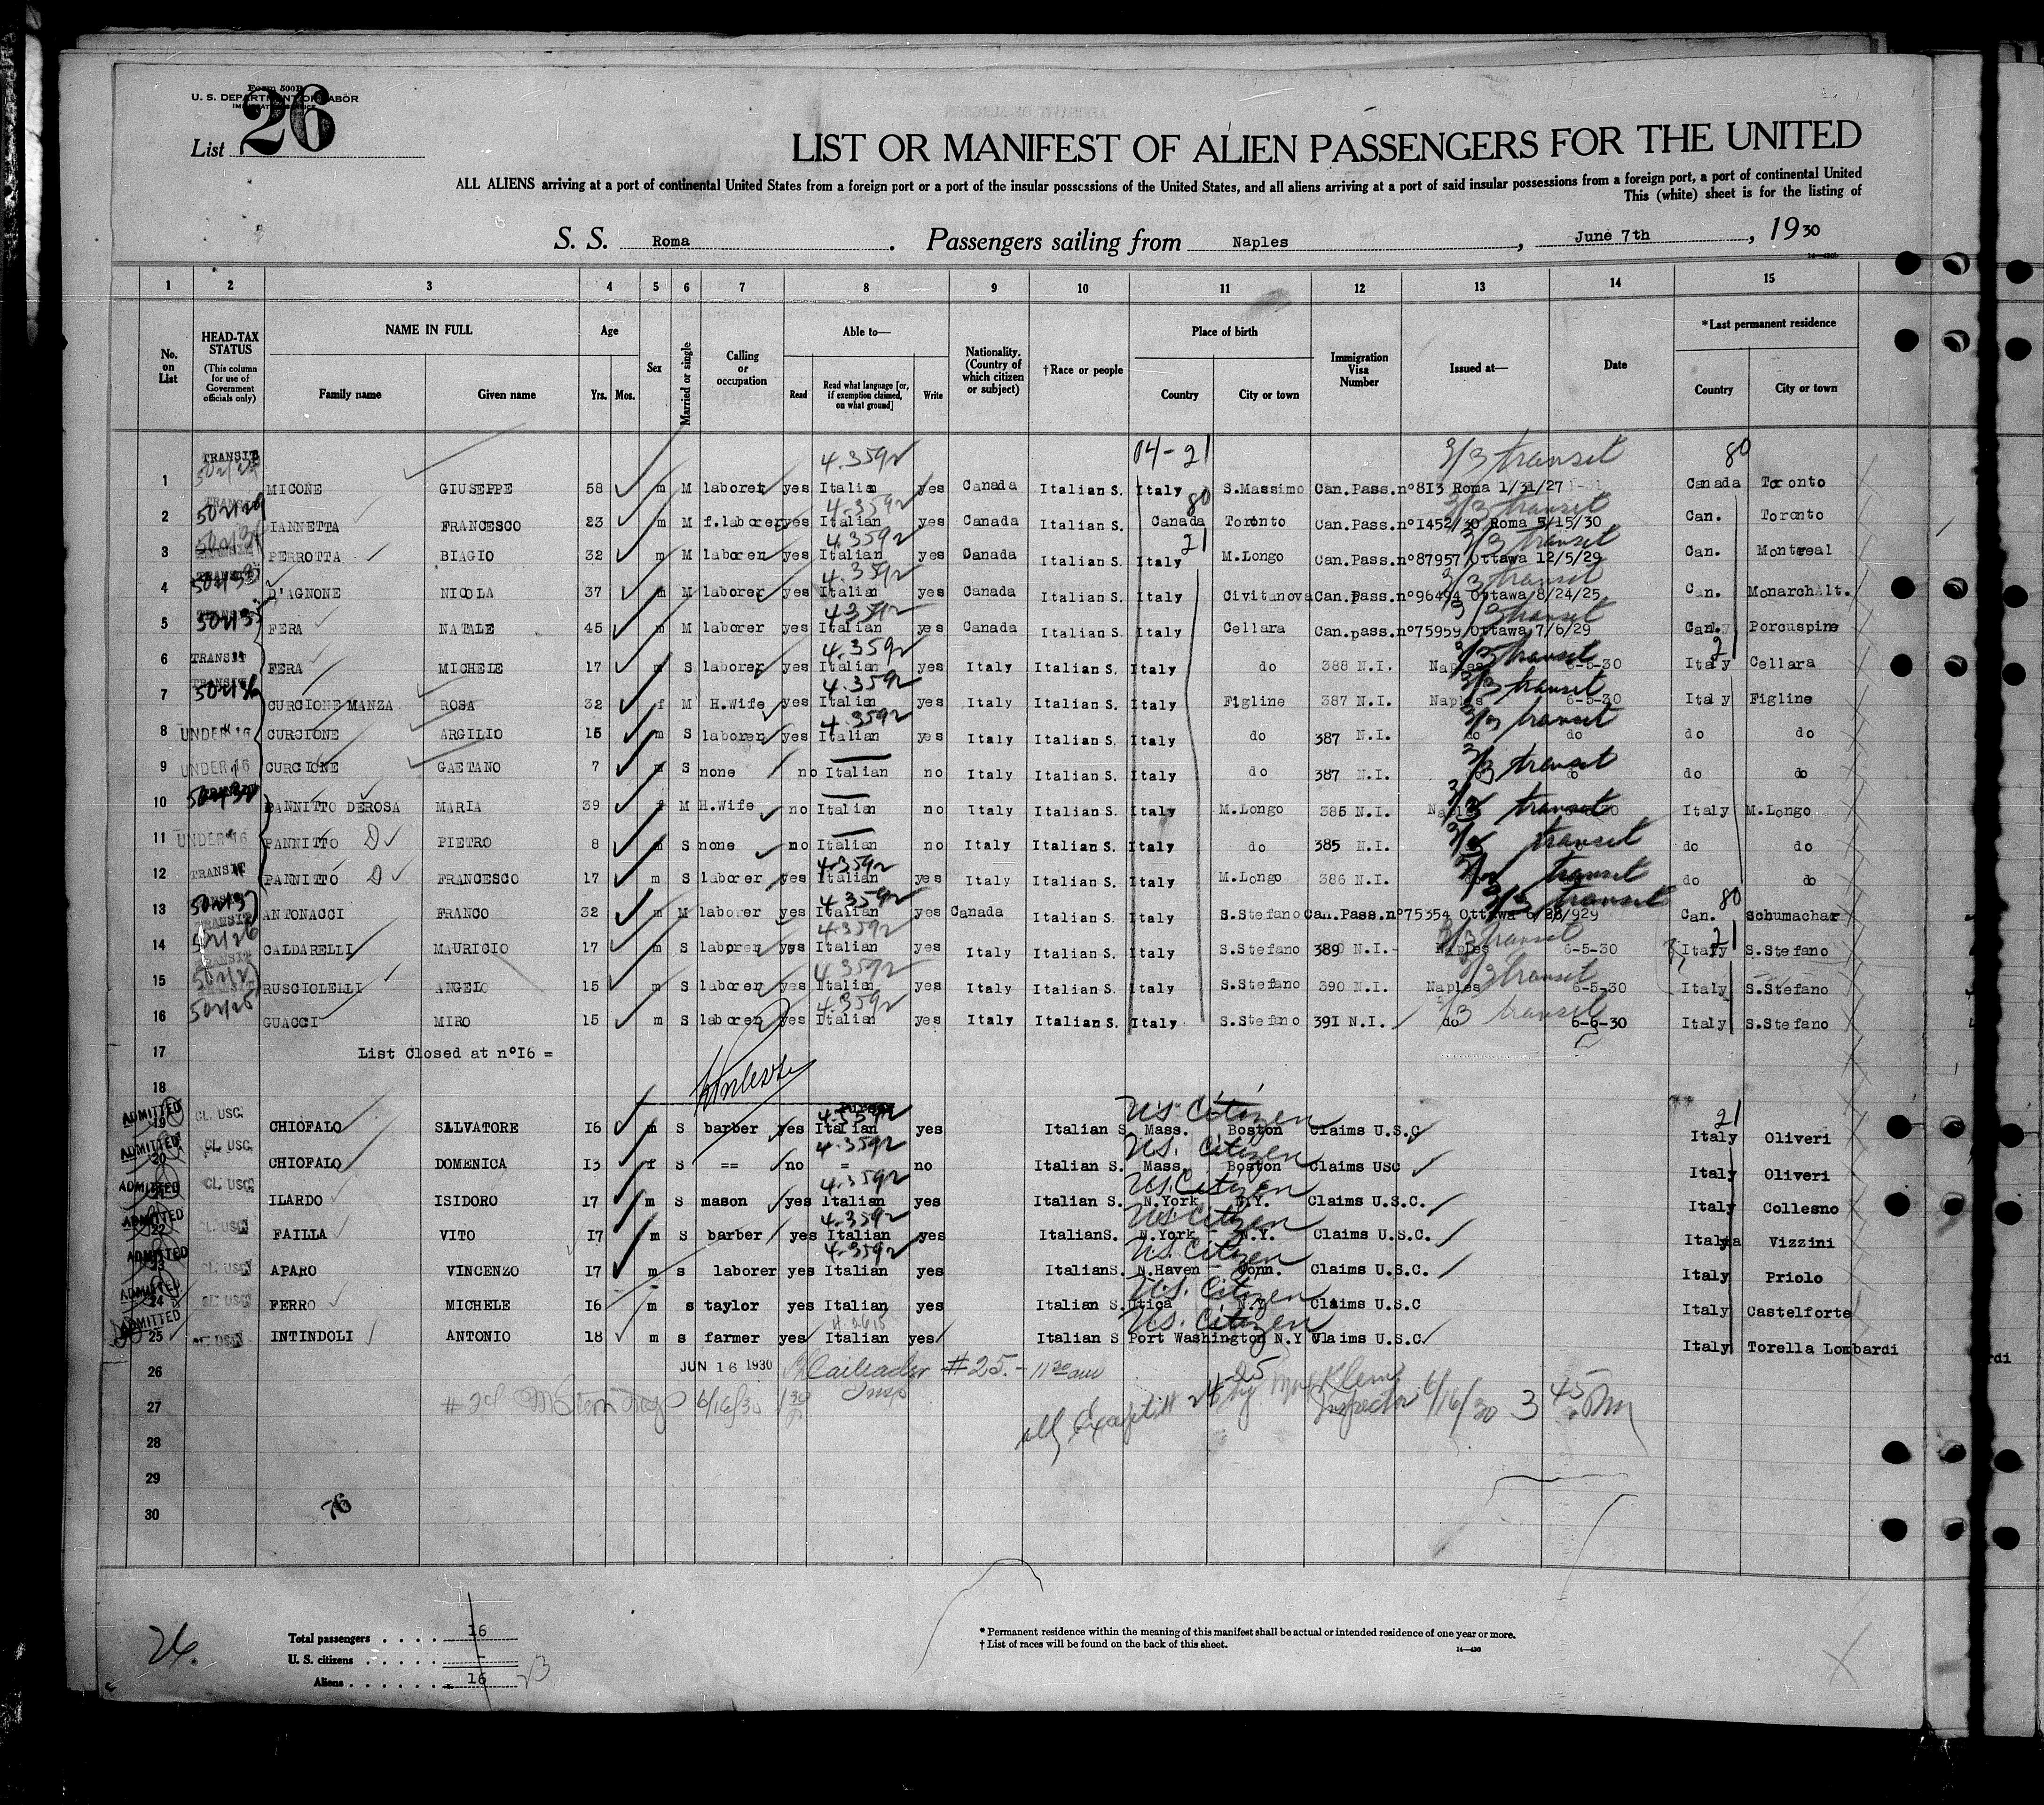 Form 500B
U. S. DEPARTMENT OF LABOR
IMMIGRATION SERVICE
List 26
LIST OR MANIFEST OF ALIEN PASSENGERS FOR THE UNITED
ALL ALIENS arriving at a port of continental United States from a foreign port or a port of the insular possessions of the United States, and all aliens arriving at a port of said insular possessions from a foreign port, a port of continental United
This (white) sheet is for the listing of
S. S. Roma . Passengers sailing from Naples , June 7th , 1930
1 2 3 4 5 6 7 8 9 10 11 12 13 14 15
No. on List
HEAD-TAX STATUS (This column for use of Government officials only)
NAME IN FULL Family name Given name
Age Yrs. Mos.
Sex
Married or single
Calling or occupation
Able to— Read Read what language [or, if exemption claimed, on what ground] Write
Nationality. (Country of which citizen or subject)
†Race or people
Place of birth Country City or town
Immigration Visa Number
Issued at—
Date
*Last permanent residence Country City or town
TRANSIT 4.3592 04-21 3/3 transit 80
1 MICONE GIUSEPPE 58 m M laborer yes Italian yes Canada Italian S. Italy S.Massimo Can.Pass.nº813 Roma 1/31/27 Canada Toronto
TRANSIT 502/29 4.3592 80 3/3 transit
2 IANNETTA FRANCESCO 23 m M f.laborer yes Italian yes Canada Italian S. Canada Toronto Can.Pass.nº1452/30 Roma 5/15/30 Can. Toronto
4.3592 21 3/3 transit
3 PERROTTA BIAGIO 32 m M laborer yes Italian yes Canada Italian S. Italy M.Longo Can.Pass.nº87957/Ottawa 12/5/29 Can. Montreal
TRANSIT 4.3592 3/3 transit
4 D'AGNONE NICOLA 37 m M laborer yes Italian yes Canada Italian S. Italy Civitanova Can.Pass.nº96494 Ottawa/8/24/25 Can. Monarch Alt.
TRANSIT 4.3592 3/3 transit
5 FERA NATALE 45 m M laborer yes Italian yes Canada Italian S. Italy Cellara Can.pass.nº75959/Ottawa 7/6/29 Can. Porcuspine
4.3592 3/3 transit
6 TRANSIT FERA MICHELE 17 m S laborer yes Italian yes Italy Italian S. Italy do 388 N.I. Naples 6-5-30 Italy Cellara
TRANSIT 4.3592 3/3 transit
7 CURCIONE MANZA ROSA 32 f M H.Wife yes Italian yes Italy Italian S. Italy Figline 387 N.I. Naples 6-5-30 Italy Figline
4.3592 3/3 transit
8 UNDER 16 CURCIONE ARGILIO 15 m S laborer yes Italian yes Italy Italian S. Italy do 387 N.I. do do do do
3/3 transit
9 UNDER 16 CURCIONE GAETANO 7 m S none no Italian no Italy Italian S. Italy do 387 N.I. do do do do
10 PANNITTO DEROSA MARIA 39 f M H.Wife no Italian no Italy Italian S. Italy M.Longo 385 N.I. Naples transit Italy M.Longo
11 UNDER 16 PANNITTO D PIETRO 8 m S none no Italian no Italy Italian S. Italy do 385 N.I. transit do do
4.3592
12 TRANSIT PANNITTO D FRANCESCO 17 m S laborer yes Italian yes Italy Italian S. Italy M.Longo 386 N.I. do transit do do
4.3592 3/3 transit 80
13 TRANSIT ANTONACCI FRANCO 32 m M laborer yes Italian yes Canada Italian S. Italy S.Stefano Can.Pass.nº75354 Ottawa 6/28/929 Can. Schumachar
4.3592 3/3 transit 21
14 CALDARELLI MAURICIO 17 m S laborer yes Italian yes Italy Italian S. Italy S.Stefano 389 N.I. Naples 6-5-30 Italy S.Stefano
TRANSIT 4.3592 3/3 transit
15 RUSCIOLELLI ANGELO 15 m S laborer yes Italian yes Italy Italian S. Italy S.Stefano 390 N.I. Naples 6-5-30 Italy S.Stefano
TRANSIT 4.3592 3/3 transit
16 GUACCI MIRO 15 m S laborer yes Italian yes Italy Italian S. Italy S.Stefano 391 N.I. do 6-6-30 Italy S.Stefano
17 List Closed at nº16 =
18
4.3592 U.S. Citizen 21
ADMITTED 19 CL. USC. CHIOFALO SALVATORE 16 m S barber yes Italian yes Italian S. Mass. Boston Claims U.S.C Italy Oliveri
4.3592 U.S. Citizen
ADMITTED 20 CL. USC. CHIOFALO DOMENICA 13 f S == no = no Italian S. Mass. Boston Claims USC Italy Oliveri
4.3592 U.S. Citizen
ADMITTED 21 CL. USC. ILARDO ISIDORO 17 m S mason yes Italian yes Italian S. N.York N.Y. Claims U.S.C. Italy Collesno
4.3592 U.S. Citizen
ADMITTED 22 CL. USC FAILLA VITO 17 m S barber yes Italian yes Italian S. N.York - N.Y. Claims U.S.C. Italy Vizzini
4.3592 U.S. Citizen
ADMITTED 23 CL. USC APARO VINCENZO 17 m s laborer yes Italian yes Italian S. N.Haven Conn. Claims U.S.C. Italy Priolo
U.S. Citizen
ADMITTED 24 CL. USC FERRO MICHELE 16 m s taylor yes Italian yes Italian S. Utica N.Y. Claims U.S.C Italy Castelforte
U.S. Citizen
ADMITTED 25 CL. USC INTINDOLI ANTONIO 18 m s farmer yes Italian yes Italian S Port Washington N.Y Claims U.S.C Italy Torella Lombardi
26 JUN 16 1930 #25.- 11 30 am
27 6/16/30 Inspector 6/16/30 3 45 Pm
28
29
30
76
26.
Total passengers . . . . 16
U. S. citizens . . . . . -
Aliens . . . . . . . 16 23
* Permanent residence within the meaning of this manifest shall be actual or intended residence of one year or more.
† List of races will be found on the back of this sheet.
14—430